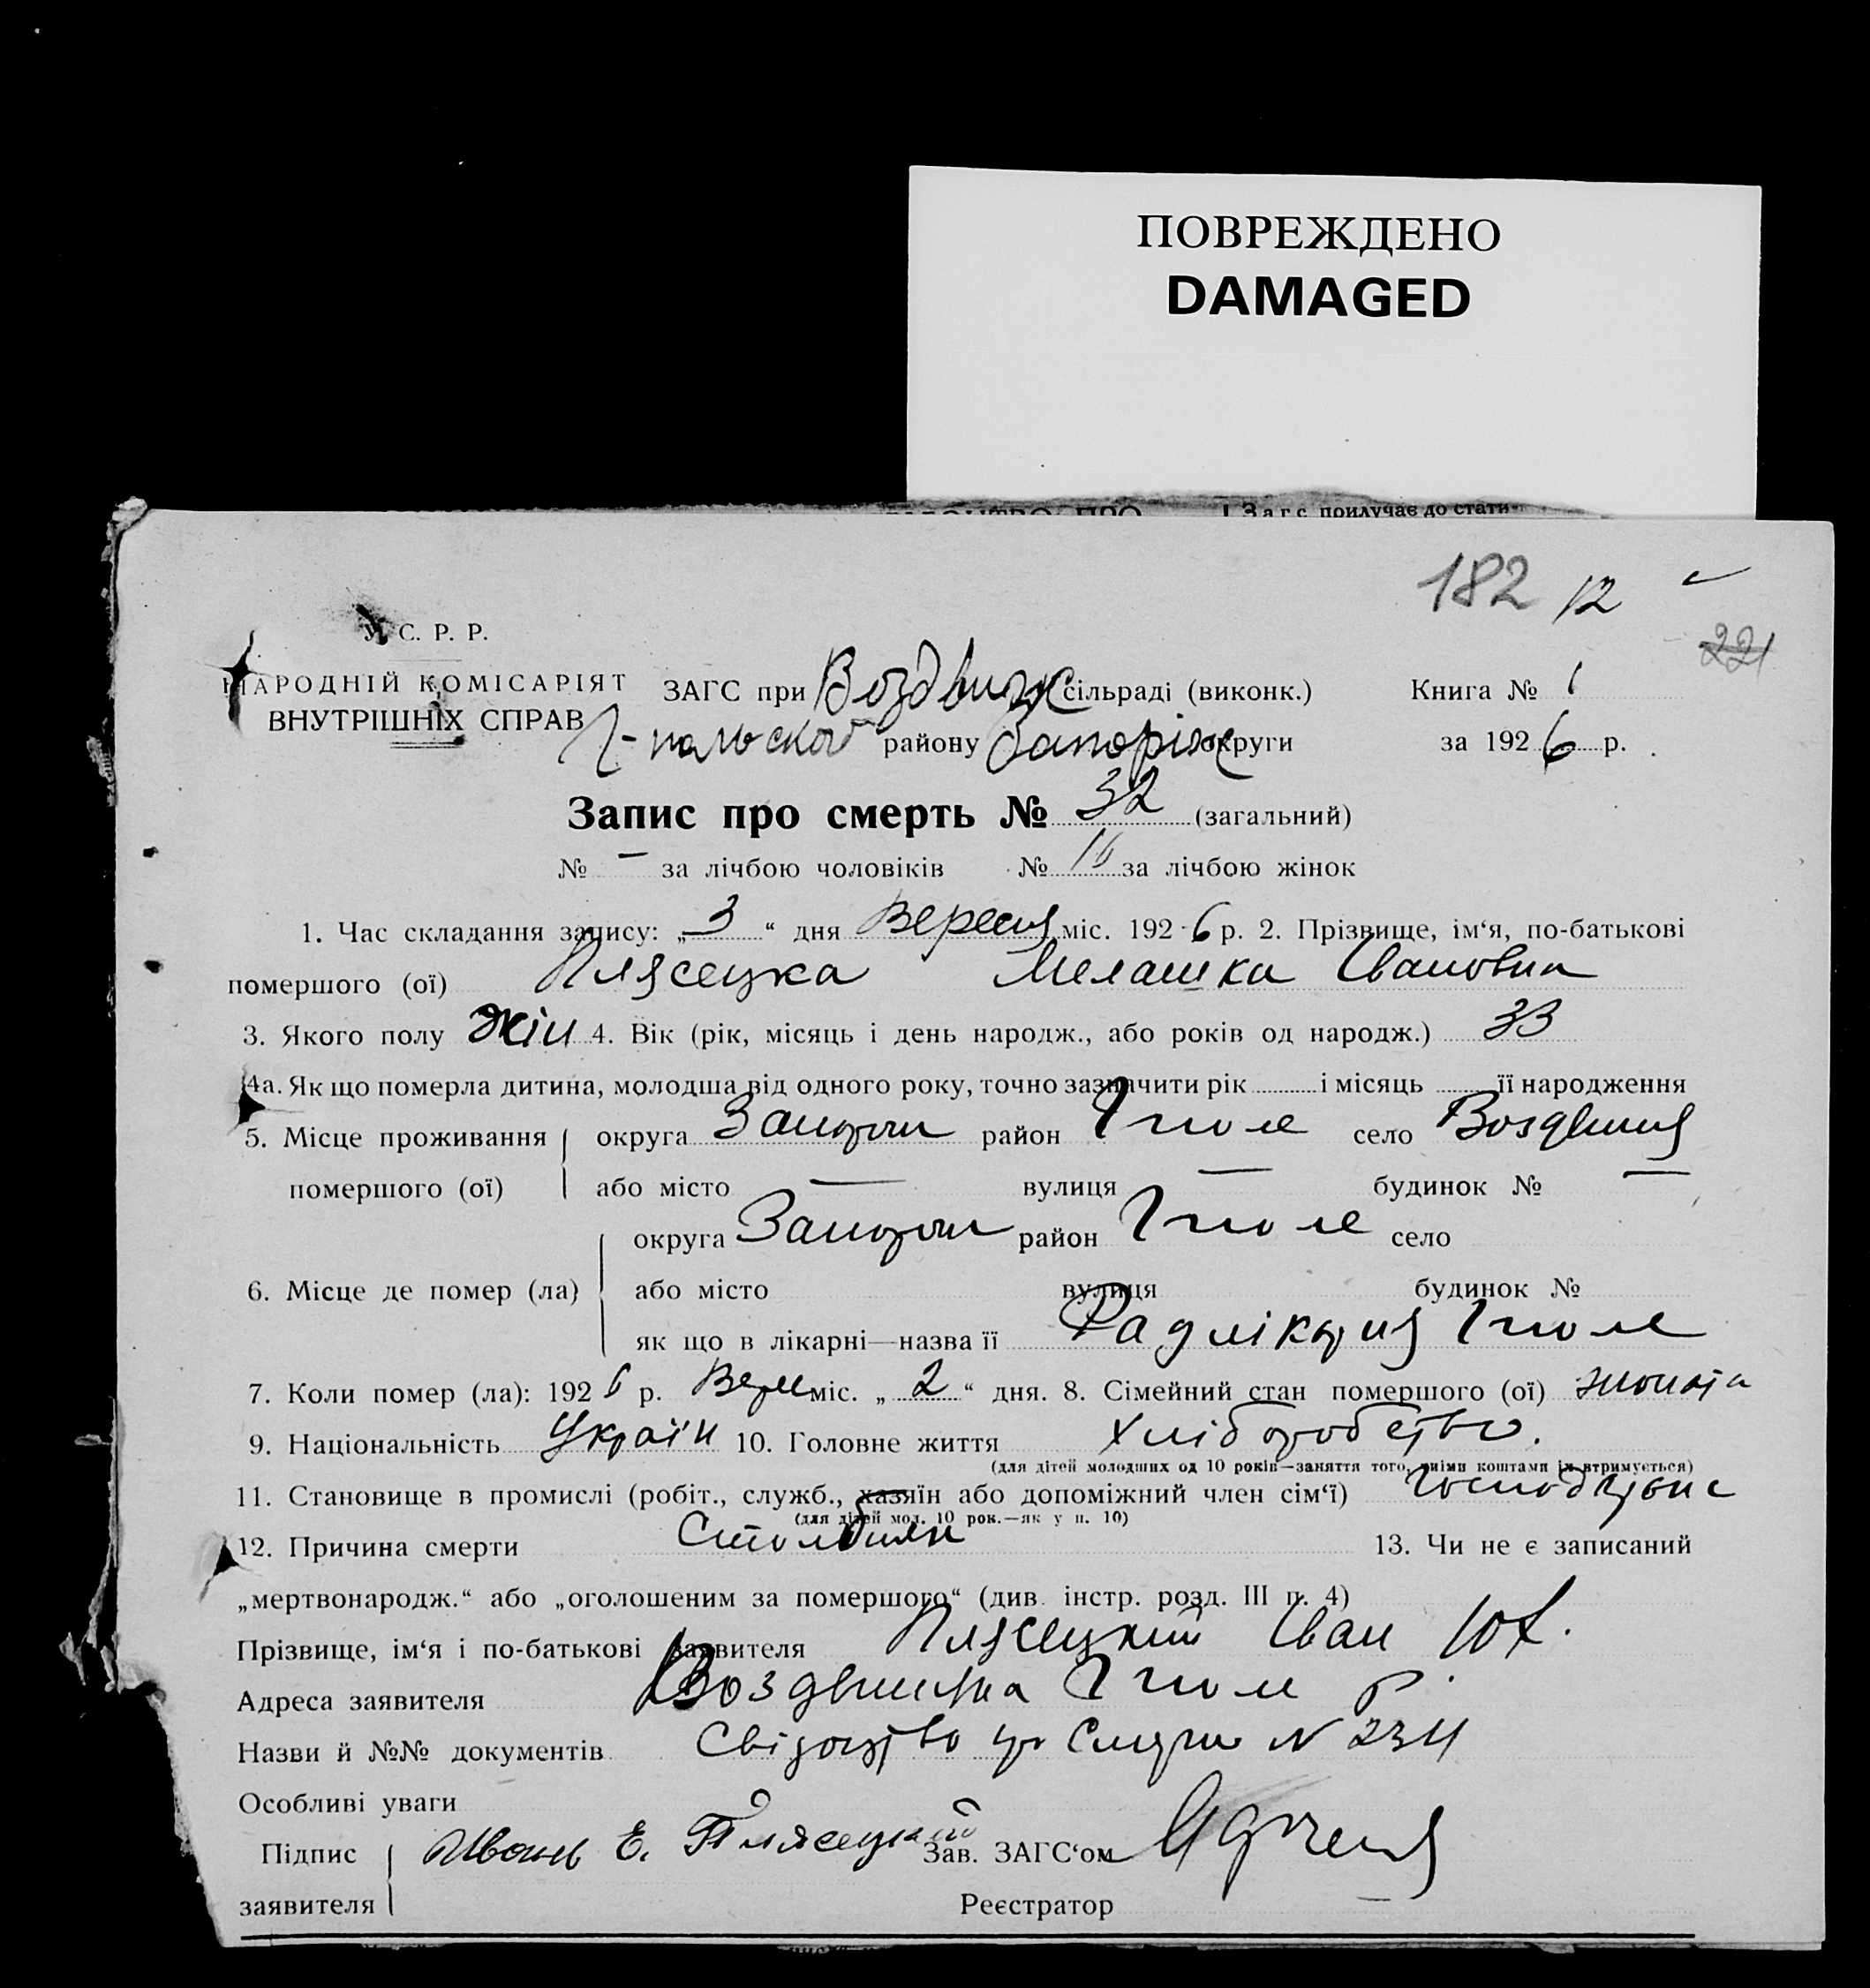 ПОВРЕЖДЕНО
DAMAGED
Загс прилучає до стати-
182 12
221
У. С. Р. Р.
НАРОДНІЙ КОМІСАРІЯТ
ВНУТРІШНІХ СПРАВ
ЗАГС при Воздвиж сільраді (виконк.) Книга № 1
Г-польской району Запоріж округи за 1926 р.
Запис про смерть № 32 (загальний)
№ — за лічбою чоловіків № 16 за лічбою жінок
1. Час складання запису: „3“ дня Вересня міс. 1926 р. 2. Прізвище, ім‘я, по-батькові
помершого (ої) Плясецка Мелашка Івановна
3. Якого полу жін 4. Вік (рік, місяць і день народж., або років од народж.) 33
4а. Як що померла дитина, молодша від одного року, точно зазначити рік і місяць її народження
5. Місце проживання округа Запорож район Гполе село Воздвиж
помершого (ої) або місто — вулиця — будинок № —
округа Запорож район Гполе село
6. Місце де помер (ла) або місто вулиця будинок №
як що в лікарні—назва її Радлікарня Гполе
7. Коли помер (ла): 1926 р. Вере міс. „2“ дня. 8. Сімейний стан помершого (ої) жоната
9. Національність Україн 10. Головне життя Хліборобство.
(для дітей молодших од 10 років—заняття того, чиїми коштами їх втримується)
11. Становище в промислі (робіт., служб., хазяїн або допоміжний член сім‘ї)
(для дітей мол. 10 рок.—як у п. 10)
12. Причина смерти Столбняк 13. Чи не є записаний
„мертвонародж.“ або „оголошеним за помершого“ (див. інстр. розд. III п. 4)
Прізвище, ім‘я і по-батькові заявителя Плясецкий Іван
Адреса заявителя Воздвижка Гполе р.
Назви й №№ документів Свідоцтво про Смерть N 234
Особливі уваги
Підпис Иванъ Е. Плясецкий Зав. ЗАГС‘ом
заявителя Реєстратор —